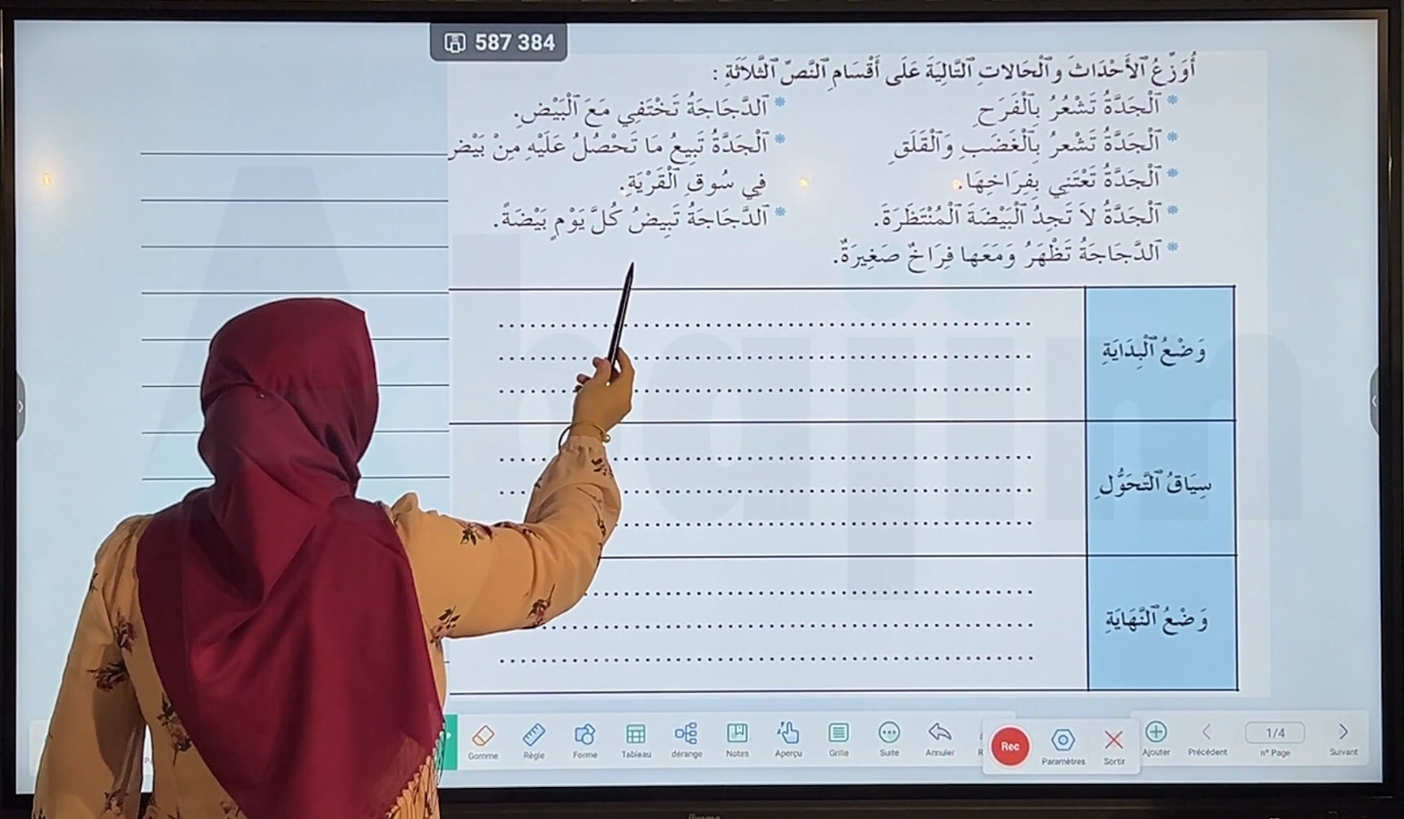 587 384
أُوَزِّعُ ٱلْأَحْدَاثَ وٱلْحَالَاتِ ٱلتَّالِيَةَ عَلَى أَقْسَامِ ٱلنَّصِّ ٱلثَّلَاثَةِ :
* ٱلْجَدَّةُ تَشْعُرُ بِٱلْفَرَحِ
* ٱلْجَدَّةُ تَشْعرُ بِٱلْغَضَبِ وَٱلْقَلَقِ
* ٱلْجَدَّةُ تَعْتَنِي بِفِرَاخِهَا.
* ٱلْجَدَّةُ لَا تَجِدُ ٱلْبَيْضَةَ ٱلْمُنْتَظَرَةَ.
* ٱلدَّجَاجَةُ تَظْهَرُ وَمَعَها فِرَاخٌ صَغِيرَةٌ.
* ٱلدَّجَاجَةُ تَخْتَفِي مَعَ ٱلْبَيْضِ.
* ٱلْجَدَّةُ تَبِيعُ مَا تَحْصُلُ عَلَيْهِ مِنْ بَيْضٍ
فِي سُوقِ ٱلْقَرْيَةِ.
* ٱلدَّجَاجَةُ تَبِيضُ كُلَّ يَوْمٍ بَيْضَةً.
وَضْعُ ٱلْبِدَايَةِ
سِيَاقُ ٱلتَّحَوُّلِ
وَضْعُ ٱلنِّهَايَةِ
Gomme Règle Forme Tableau dérange Notes Aperçu Grille Suite Annuler Rec Paramètres Sortir Ajouter Précédent 1/4 n° Page Suivant